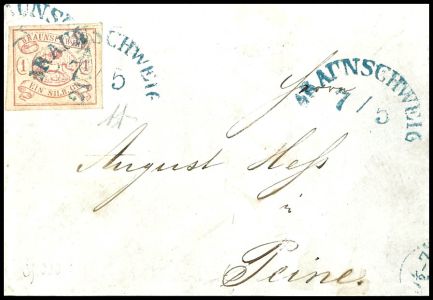 BRAUNSCHWEIG
7/5
BRAUNSCHWEIG
1 1
EIN SILB. GR.
BRAUNSCHWEIG
7/5
Herrn
August Hess
in
Peine.